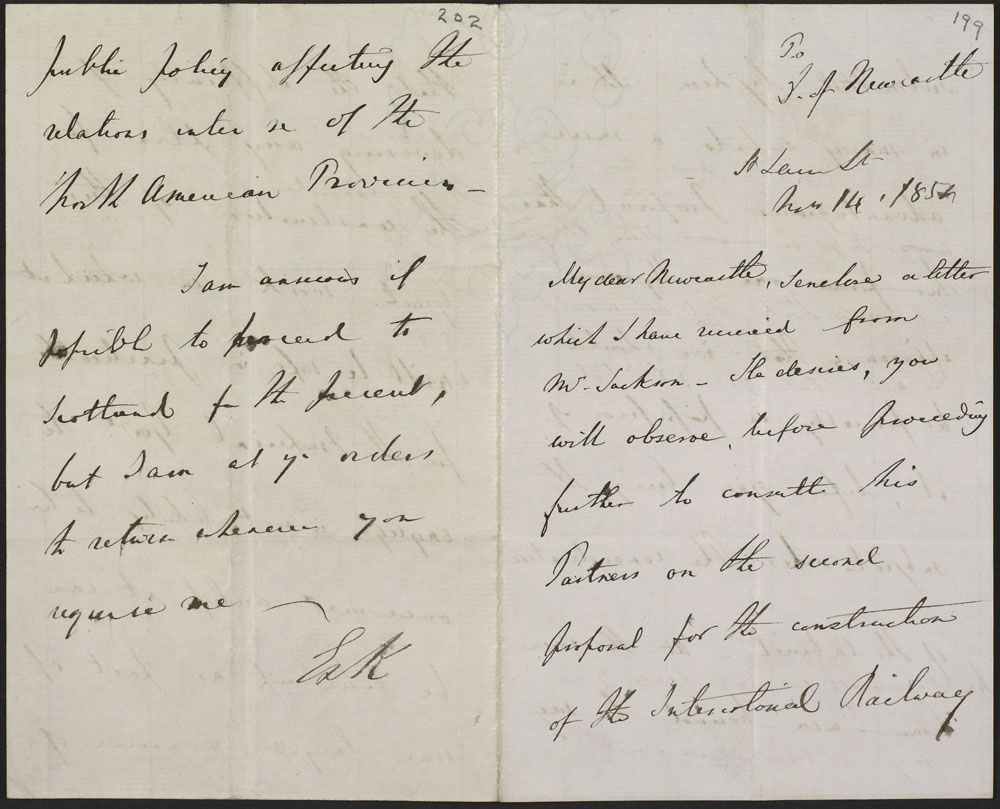 202
public policy affecting the
relations inter se of the
North American Provinces —
I am anxious if
possible to proceed to
Scotland for the present,
but I am at yr orders
to return whenever you
require me —
E & K
199
To
D. of Newcastle
St
14. 1854
My dear Newcastle, I enclose a letter
which I have received from
Mr. Jackson — He desires, you
will observe, before proceeding
further to consult his
Partners on the second
proposal for the construction
of the Intercolonial Railway